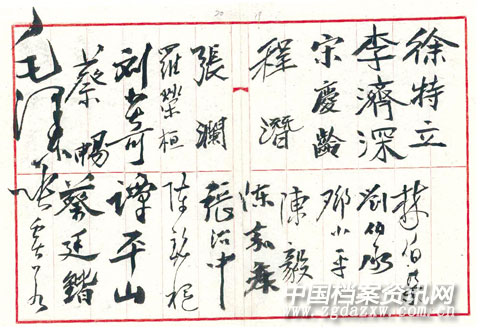 徐特立
李濟深
宋慶齡
程潛
張瀾
羅榮桓
刘少奇
蔡暢
毛澤东
林伯渠
劉伯承
邓小平
陳毅
陈嘉庚
張治中
譚平山
蔡廷鍇
中国档案资讯网
www.zgdazxw.com.cn